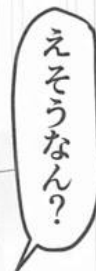 えそうなん?